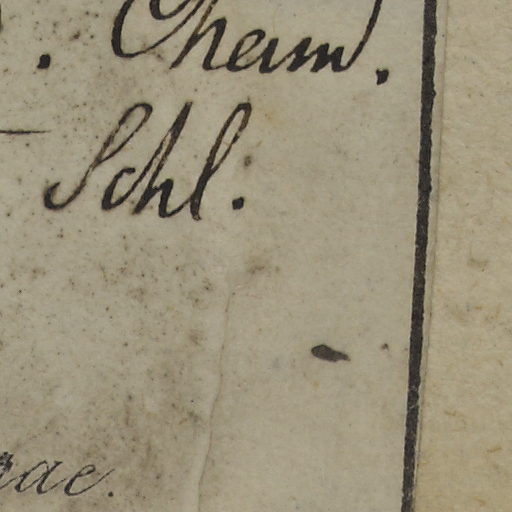 . Cham.
Schl.
rae.